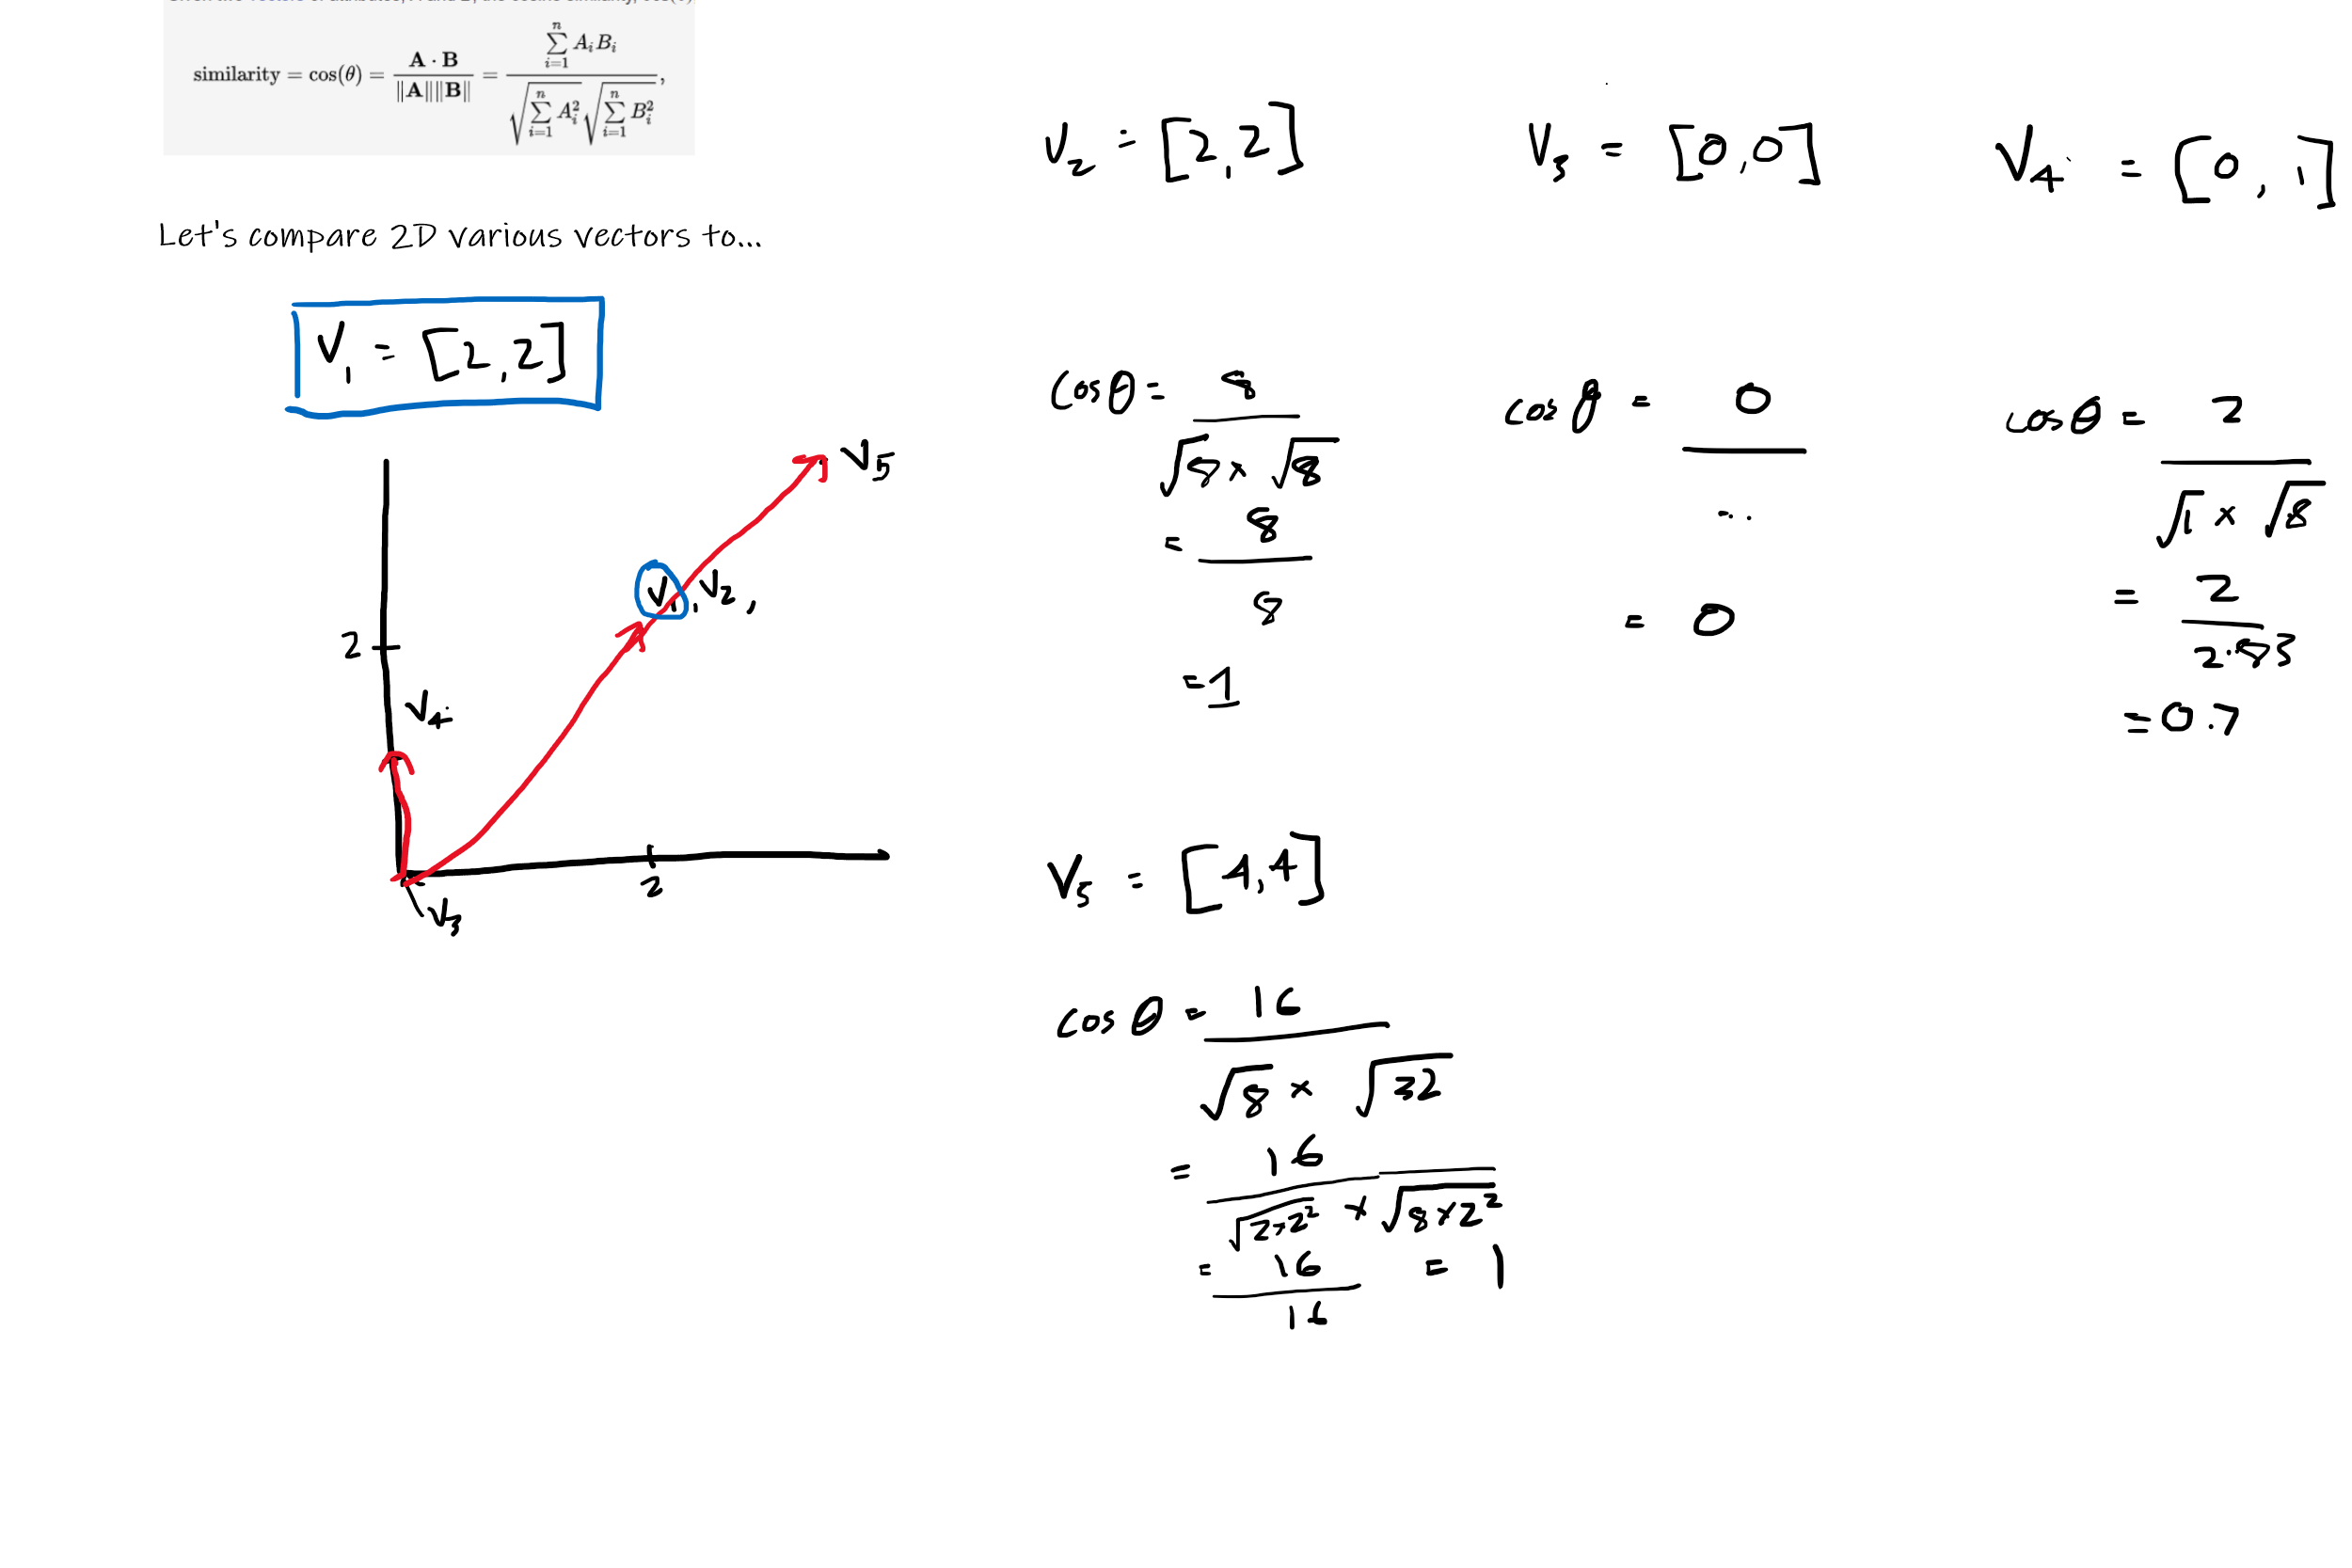 similarity = cos(θ) = A · B / ‖A‖‖B‖ = ∑ i=1 n A_i B_i / √(∑ i=1 n A_i^2) √(∑ i=1 n B_i^2) ,
Let's compare 2D various vectors to...
V1 = [2,2]
V5
V1, V2,
2
V4
2
V3
V2 = [2,2]
cosθ = 8 / √8 × √8
= 8 / 8
= 1
V3 = [0,0]
cosθ = 0 / ...
= 0
V4 = [0, 1]
cosθ = 2 / √1 × √8
= 2 / 2.83
= 0.7
V5 = [4,4]
cosθ = 16 / √8 × √32
= 16 / √2×2^2 × √8×2^2
= 16 / 16 = 1